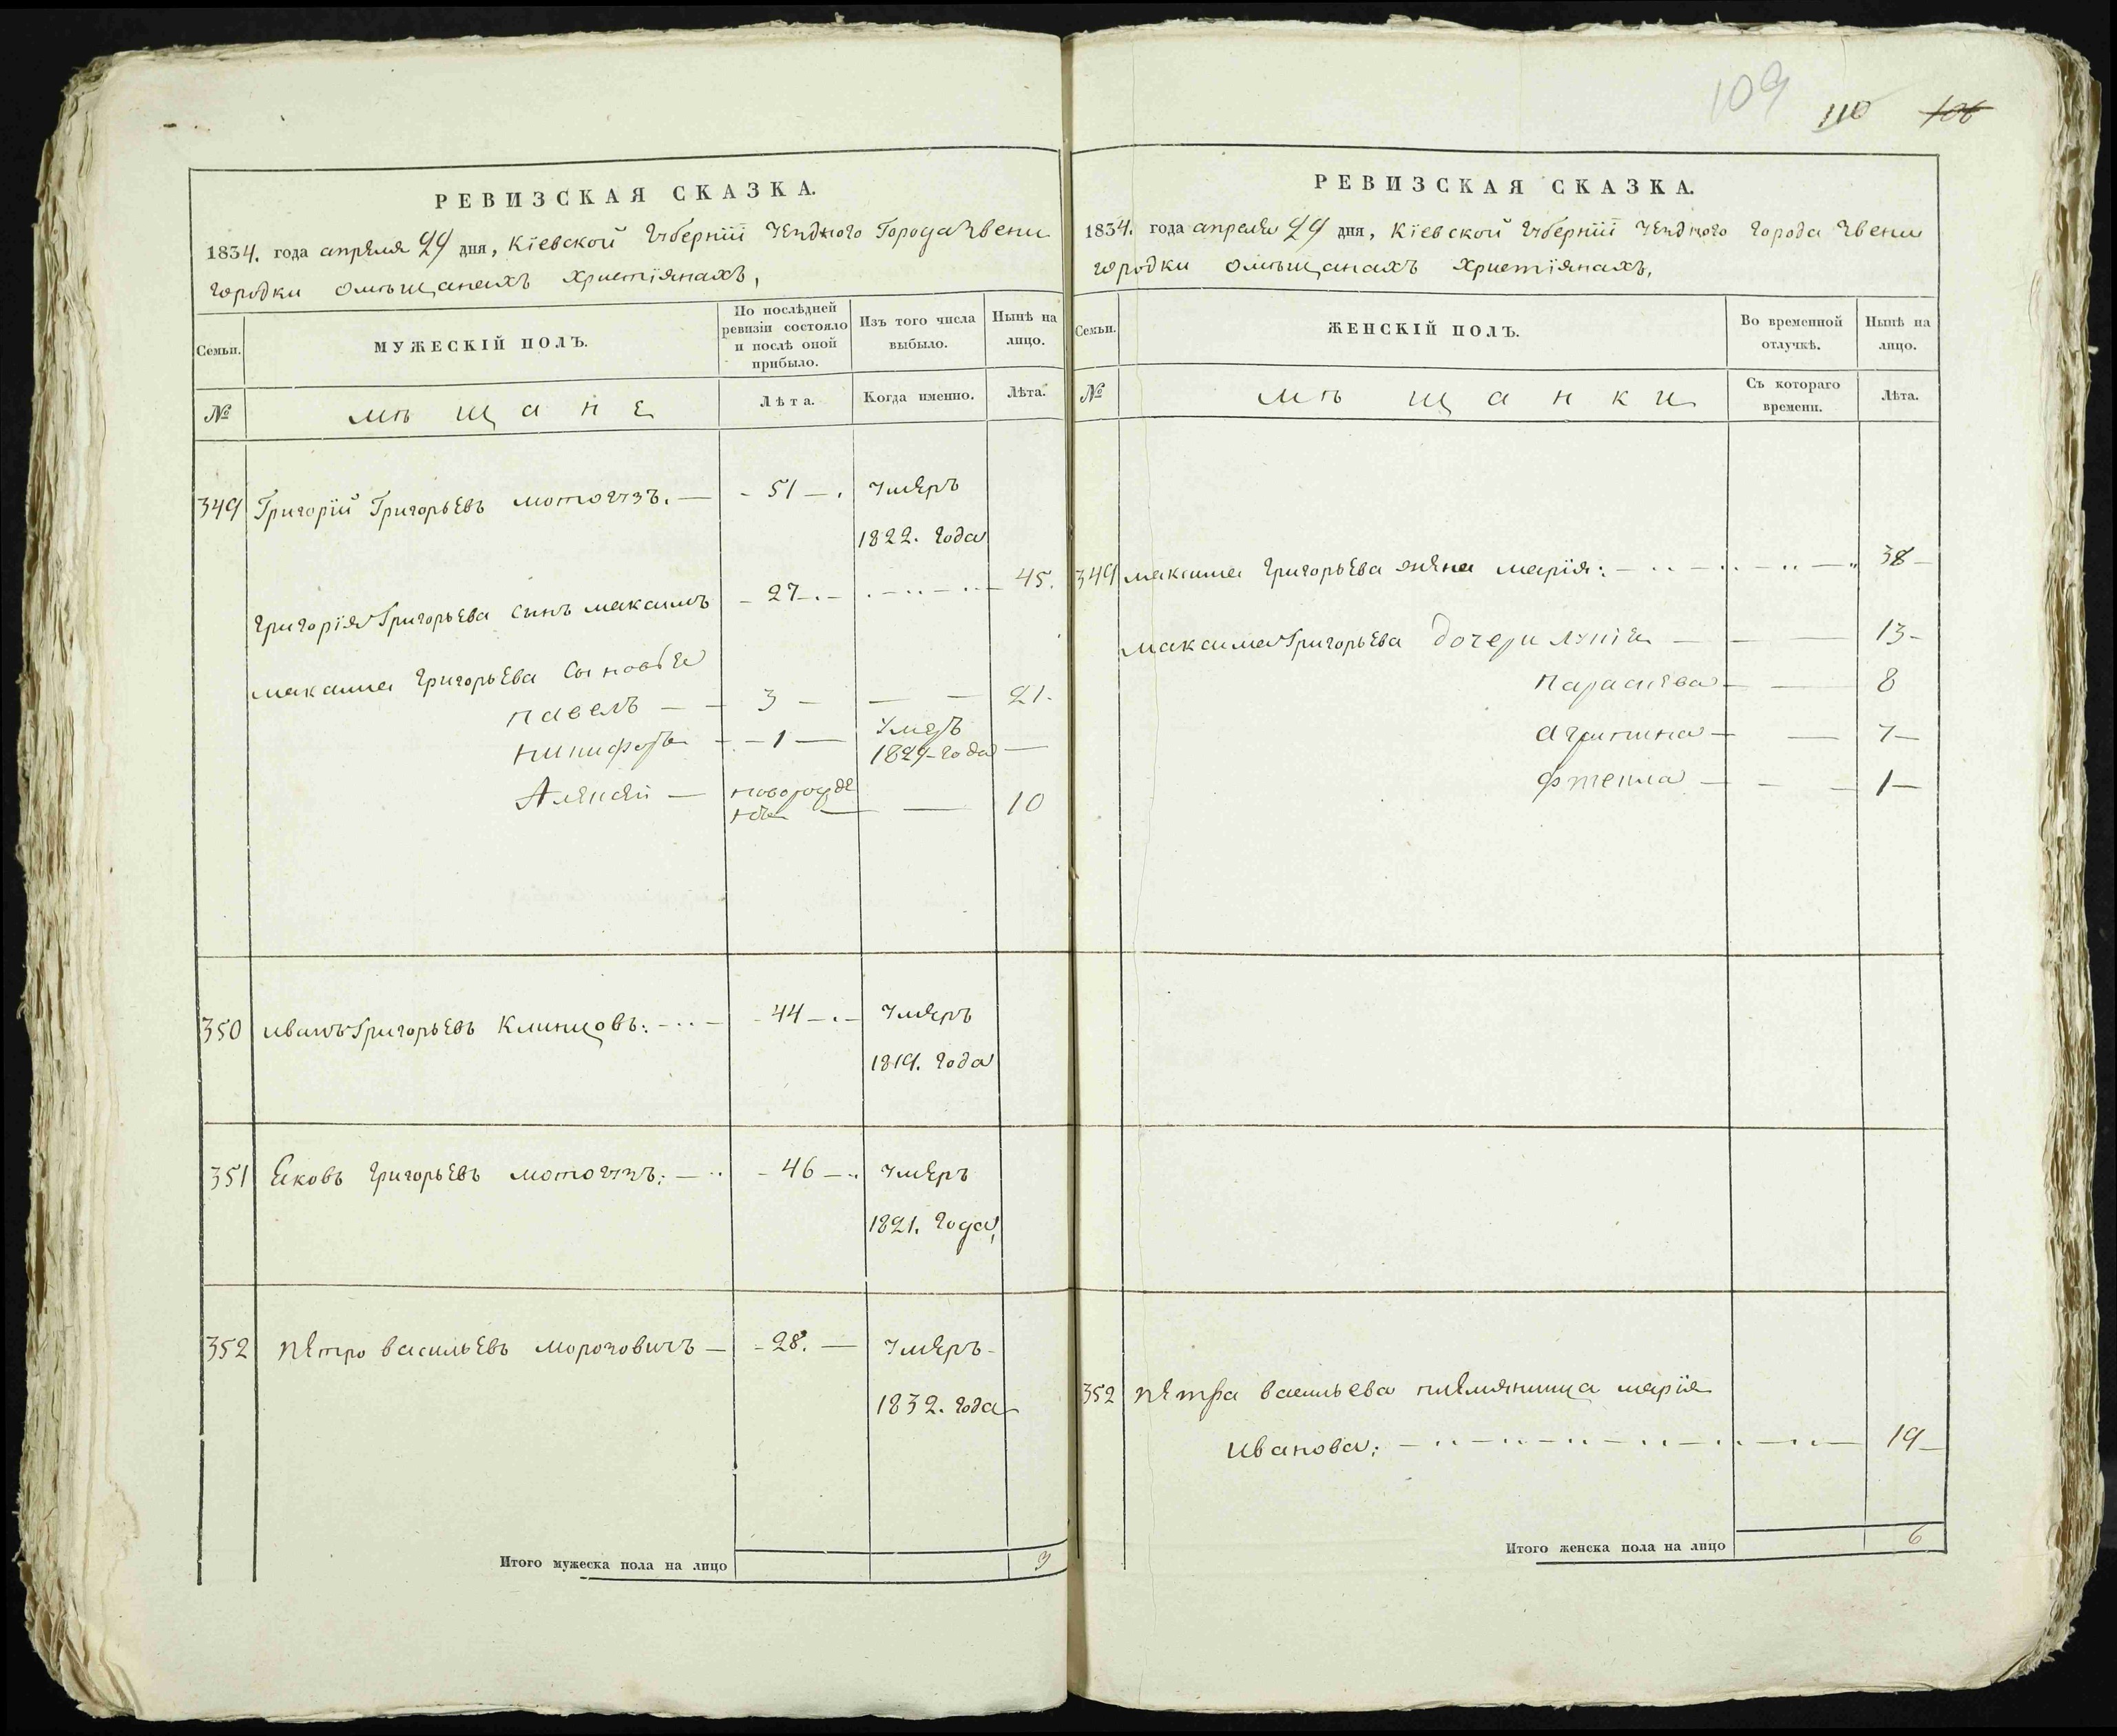 109 110 106
РЕВИЗСКАЯ СКАЗКА.
1834. года апреля 29 дня, Кіевской Губерніи Уезднаго Города Звени
городки омѣщанахъ христіянахъ,
Семьи. МУЖЕСКІЙ ПОЛЪ. По послѣдней ревизіи состояло и послѣ оной прибыло. Изъ того числа выбыло. Нынѣ на лицо.
№ мѣщане Лѣта. Когда именно. Лѣта.
349 Григорій Григорьевъ мотогузъ. — - 51 — . умеръ
1822. года
григорія Григорьева сынъ максимъ - 27 - . - 45.
максима григорьева сыновья
павелъ — 3 — — — 21.
никифоръ - - 1 — умеръ
1829 года —
Алексей — новорожде
нъ — — 10
350 иванъ Григорьевъ Клинцовъ: - 44 - . - умеръ
1819. года
351 Яковъ григорьевъ мотогузъ: — - 46 — .. умеръ
1821. года,
352 петро васильевъ морозовичъ — - 28. — умеръ -
1832. года
Итого мужеска пола на лицо 3
РЕВИЗСКАЯ СКАЗКА.
1834. года апреля 29 дня, Кіевской Губерніи Уезднаго города Звени
городки омѣщанахъ христіянахъ,
Семьи. ЖЕНСКІЙ ПОЛЪ. Во временной отлучкѣ. Нынѣ на лицо.
№ мѣщанки Съ котораго времени. Лѣта.
349 максима григорьева жена марія: 38 -
максима Григорьева дочери — — 13 -
параскева — — 8
агрипина — — 7 -
фтекла — - - 1 -
352 петра васильева племянница марія
Иванова: 19 -
Итого женска пола на лицо 6